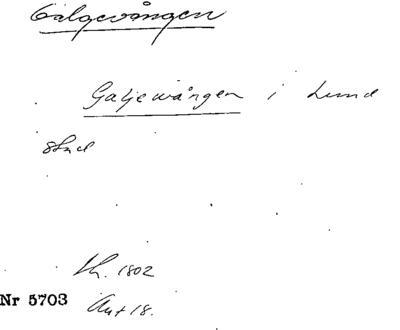 Galgevången
Galjevången i Lund
stad
Sk. 1802
Nr 5703 Akt 18.